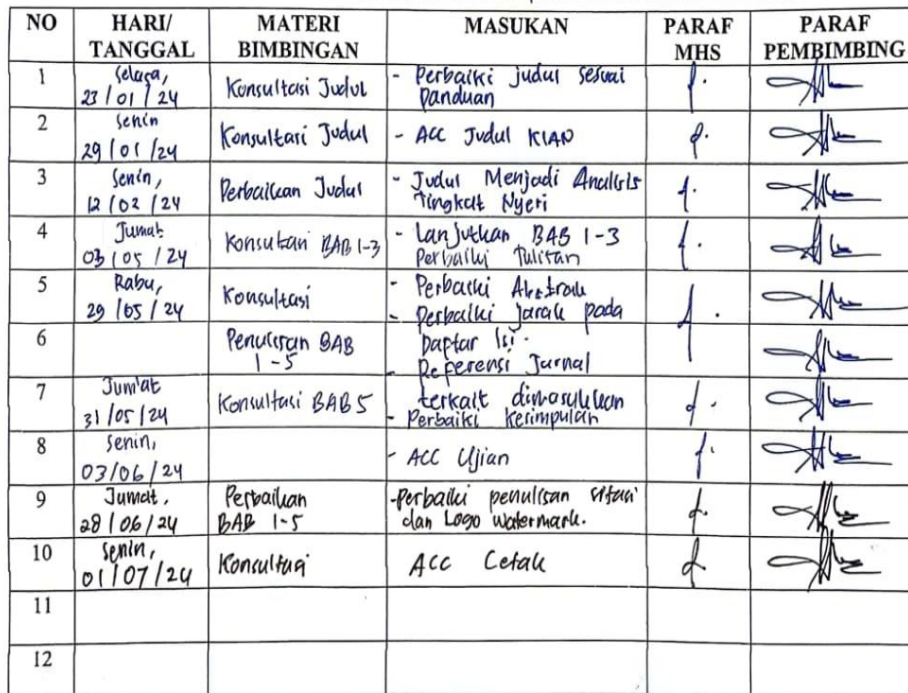 NO HARI/ TANGGAL MATERI BIMBINGAN MASUKAN PARAF MHS PARAF PEMBIMBING
1 Selasa, 23/01/24 Konsultasi Judul - Perbaiki judul sesuai
panduan
2 Senin 29/01/24 Konsultasi Judul - ACC Judul KIAN
3 Senin, 12/02/24 Perbaikan Judul - Judul Menjadi Analisis
Tingkat Nyeri
4 Jumat 03/05/24 Konsultasi BAB 1-3 - Lanjutkan BAB 1-3
Perbaiki Tulisan
5 Rabu, 29/05/24 Konsultasi - Perbaiki Abstrak
- Perbaiki jarak pada
6 Penulisan BAB 1-5 Daftar Isi.
- Referensi Jurnal
7 Jum'at 31/05/24 Konsultasi BAB 5 terkait dimasukkan
- Perbaiki Kesimpulan
8 Senin, 03/06/24 - ACC Ujian
9 Jumat, 28/06/24 Perbaikan BAB 1-5 - Perbaiki penulisan sitasi
dan Logo watermark.
10 Senin, 01/07/24 Konsultasi ACC Cetak
11
12